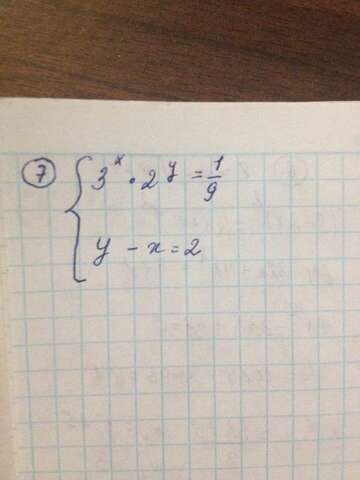 7 3^x · 2^y = 1/9
y - x = 2